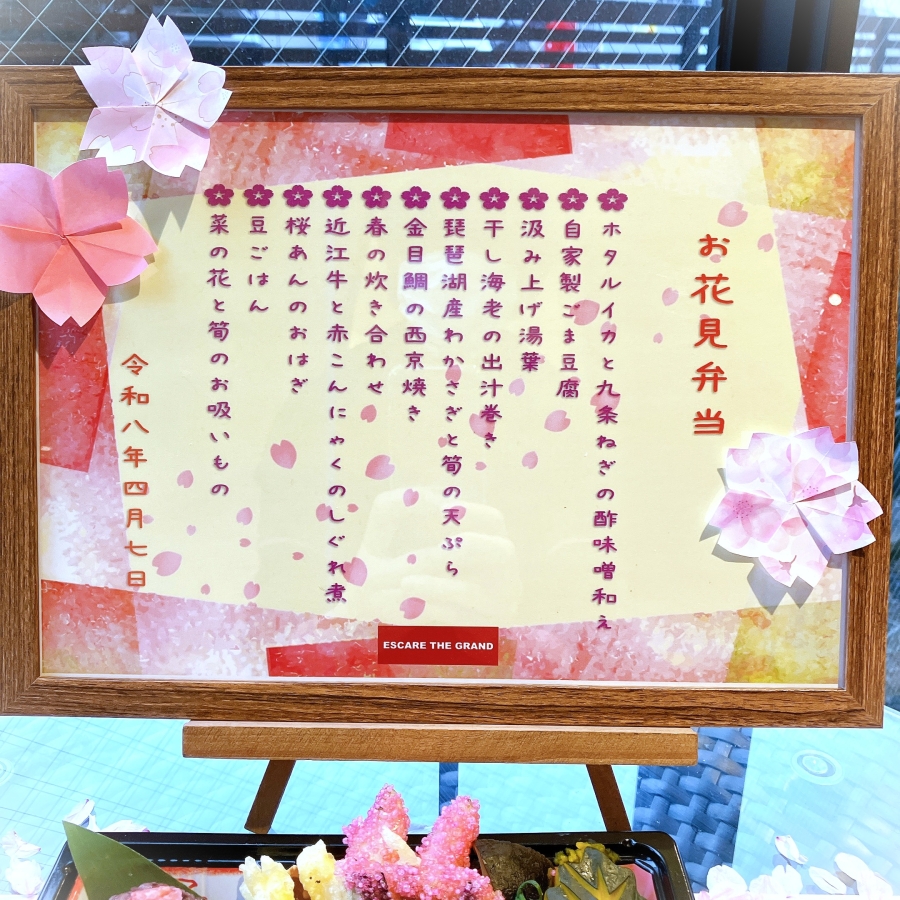 お花見弁当
ホタルイカと九条ねぎの酢味噌和え
自家製ごま豆腐
汲み上げ湯葉
干し海老の出汁巻き
琵琶湖産わかさぎと筍の天ぷら
金目鯛の西京焼き
春の炊き合わせ
近江牛と赤こんにゃくのしぐれ煮
桜あんのおはぎ
豆ごはん
菜の花と筍のお吸いもの
令和八年四月七日
ESCARE THE GRAND